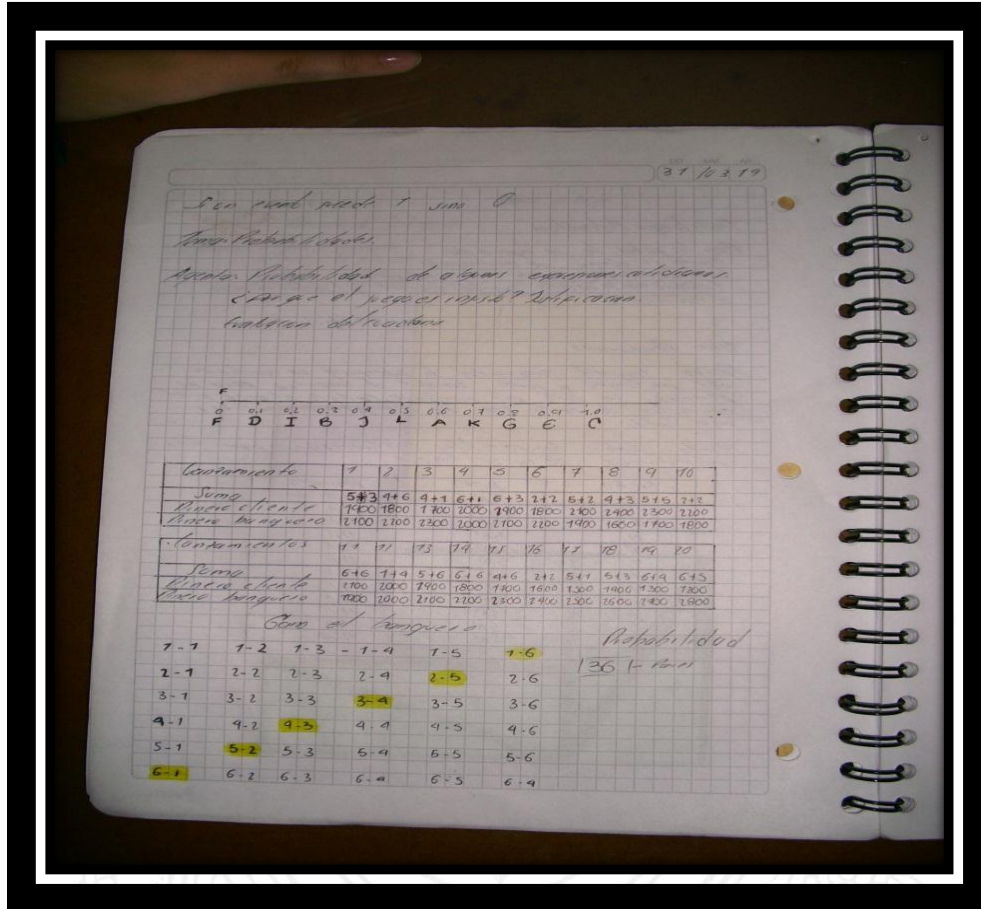 31 /03 19
Si un puede 1 sino 0
Tema: Probabilidades.
Agenda: Probabilidad de algunas cotidianas
¿Por que el juego es ? Justificacion
Evaluacion del cuaderno
F
0 0.1 0.2 0.3 0.4 0.5 0.6 0.7 0.8 0.9 1.0
F D I B J L A K G E C
Lanzamiento 1 2 3 4 5 6 7 8 9 10
Suma 5+3 4+6 4+1 6+1 6+3 2+2 5+2 4+3 5+5 2+2
Dinero cliente 1900 1800 1700 2000 1900 1800 2100 2400 2300 2200
Dinero banquero 2100 2200 2300 2000 2100 2200 1900 1600 1700 1800
Lanzamientos 11 12 13 14 15 16 17 18 19 20
Suma 6+6 1+4 5+6 6+6 4+6 2+2 5+1 5+3 6+4 6+3
Dinero cliente 2100 2000 1900 1800 1700 1600 1500 1400 1300 1200
Dinero banquero 1900 2000 2100 2200 2300 2400 2500 2600 2700 2800
Gano el banquero
Probabilidad
1-1 1-2 1-3 - 1-4 1-5 1-6
136
2-1 2-2 2-3 2-4 2-5 2-6
3-1 3-2 3-3 3-4 3-5 3-6
4-1 4-2 4-3 4-4 4-5 4-6
5-1 5-2 5-3 5-4 5-5 5-6
6-1 6-2 6-3 6-4 6-5 6-4